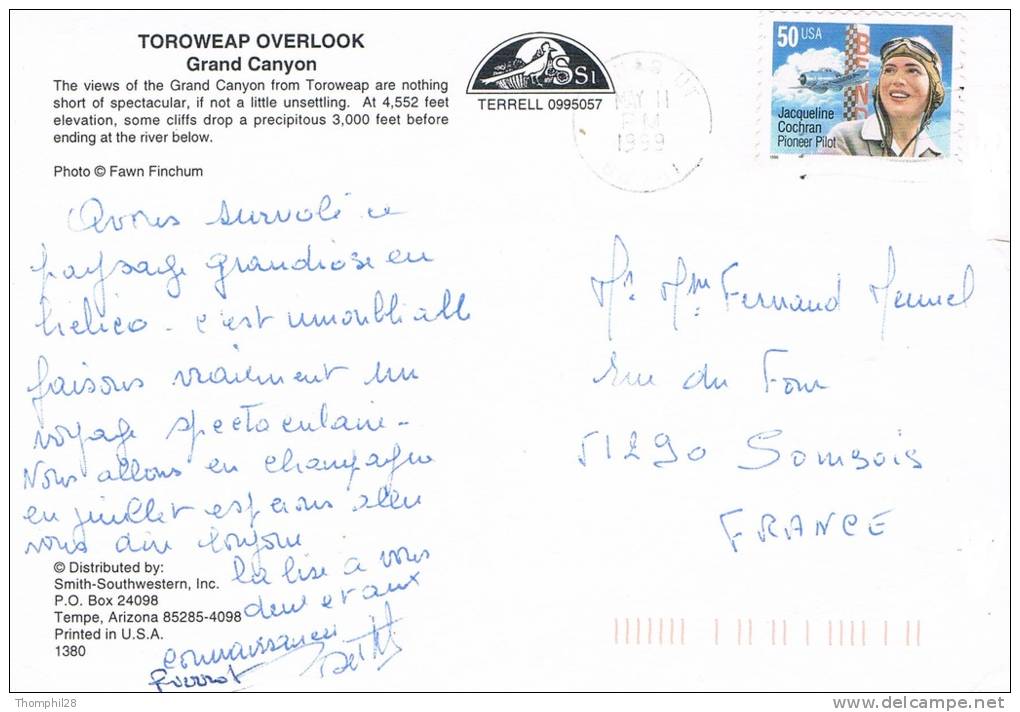 TOROWEAP OVERLOOK
Grand Canyon
The views of the Grand Canyon from Toroweap are nothing
short of spectacular, if not a little unsettling. At 4,552 feet
elevation, some cliffs drop a precipitous 3,000 feet before
ending at the river below.
Photo © Fawn Finchum
SSI
TERRELL 0995057
MAY 11
PM
1999
50 USA
Jacqueline
Cochran
Pioneer Pilot
Avons survolé ce
paysage grandiose en
hélico - c'est inoubliable
faisons vraiment un
voyage spectaculaire -
Nous allons en champagne
en juillet espérons aller
vous dire bonjour
la bise à vous
deux et aux
connaissances
Pierrot
Mr. Mme Fernand
rue du Four
51290 Somsois
FRANCE
© Distributed by:
Smith-Southwestern, Inc.
P.O. Box 24098
Tempe, Arizona 85285-4098
Printed in U.S.A.
1380
Thomphi28
http://www.delcampe.net